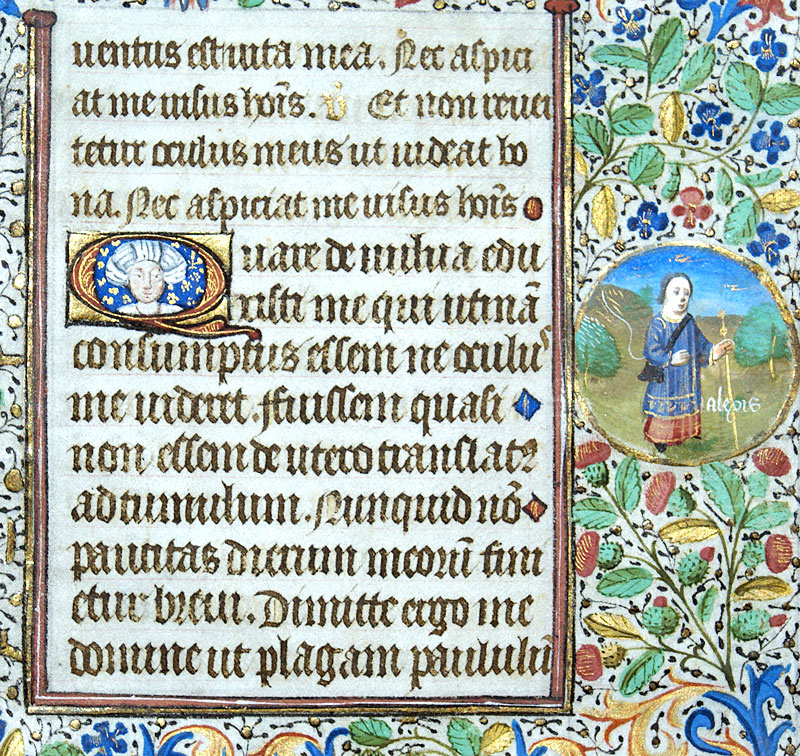 uentus est uita mea. Nec aspici
at me uisus hoīs. v̄ Et non reuer
tetur oculus meus ut uideat bo
na. Nec aspiciat me uisus hoīs
Quare de uulua edu
xisti me qui utinā
consumptus essem ne oculus
me uideret. ffuissem quasi
non essem de utero translatꝰ
ad tumulum. Nunquid nō
paucitas dierum meorū fini
etur breui. Dimitte ergo me
domine ut plagam paululū